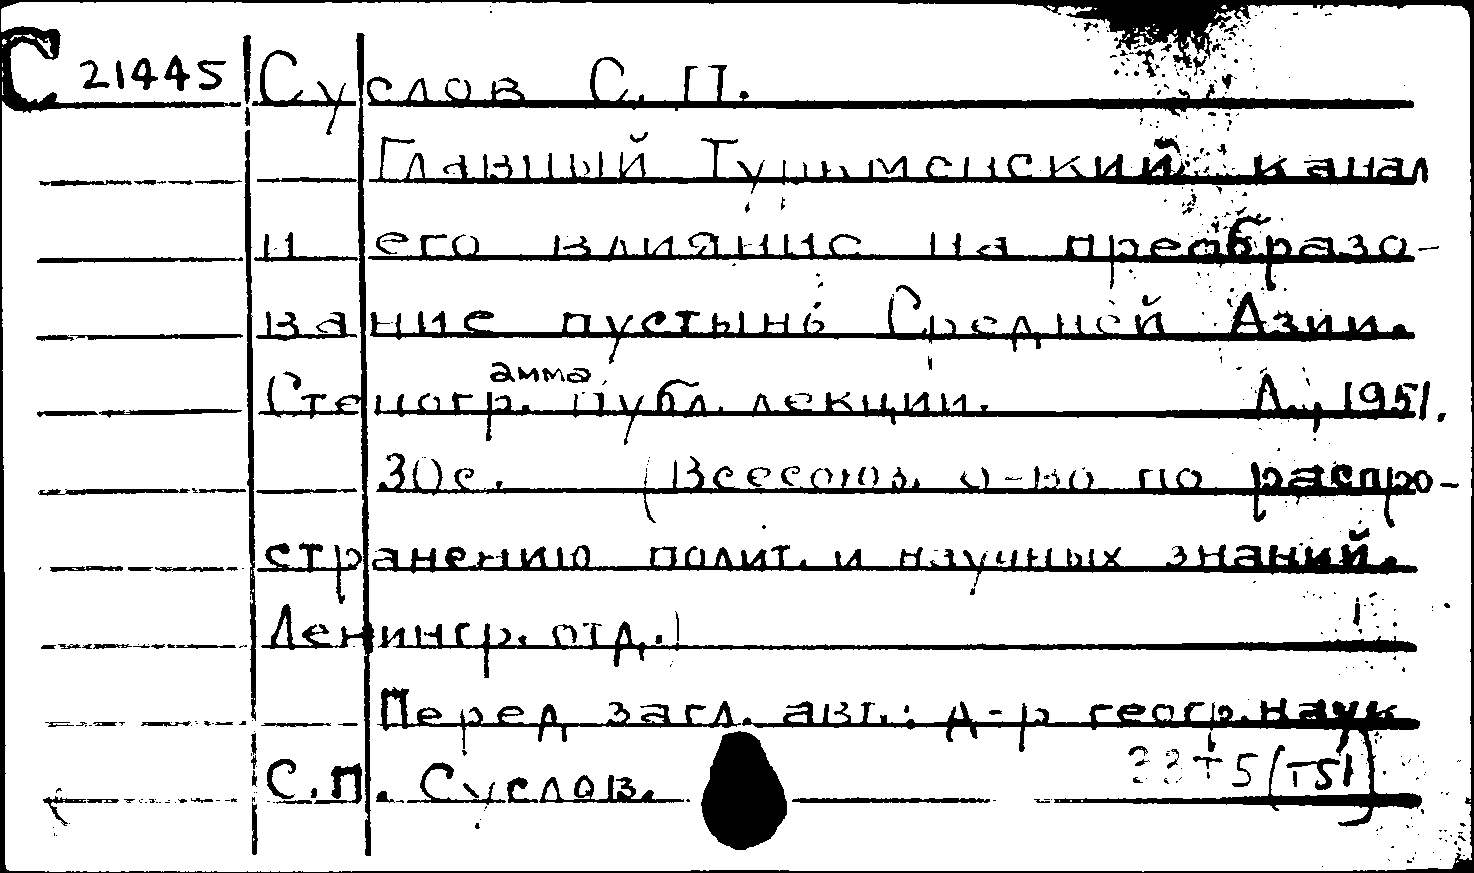 С 21445 Суслов С. П.
Главный Туркменский канал
и его влияние на преобразо-
вание пустынь Средней Азии.
Стенограмма публ. лекции. Л., 1951.
30с. (Всесоюз. о-во по распро-
странению полит. и научных знаний.
Ленингр. отд.)
Перед загл. авт.: д-р геогр. наук
С.П. Суслов. 33T5(T51)